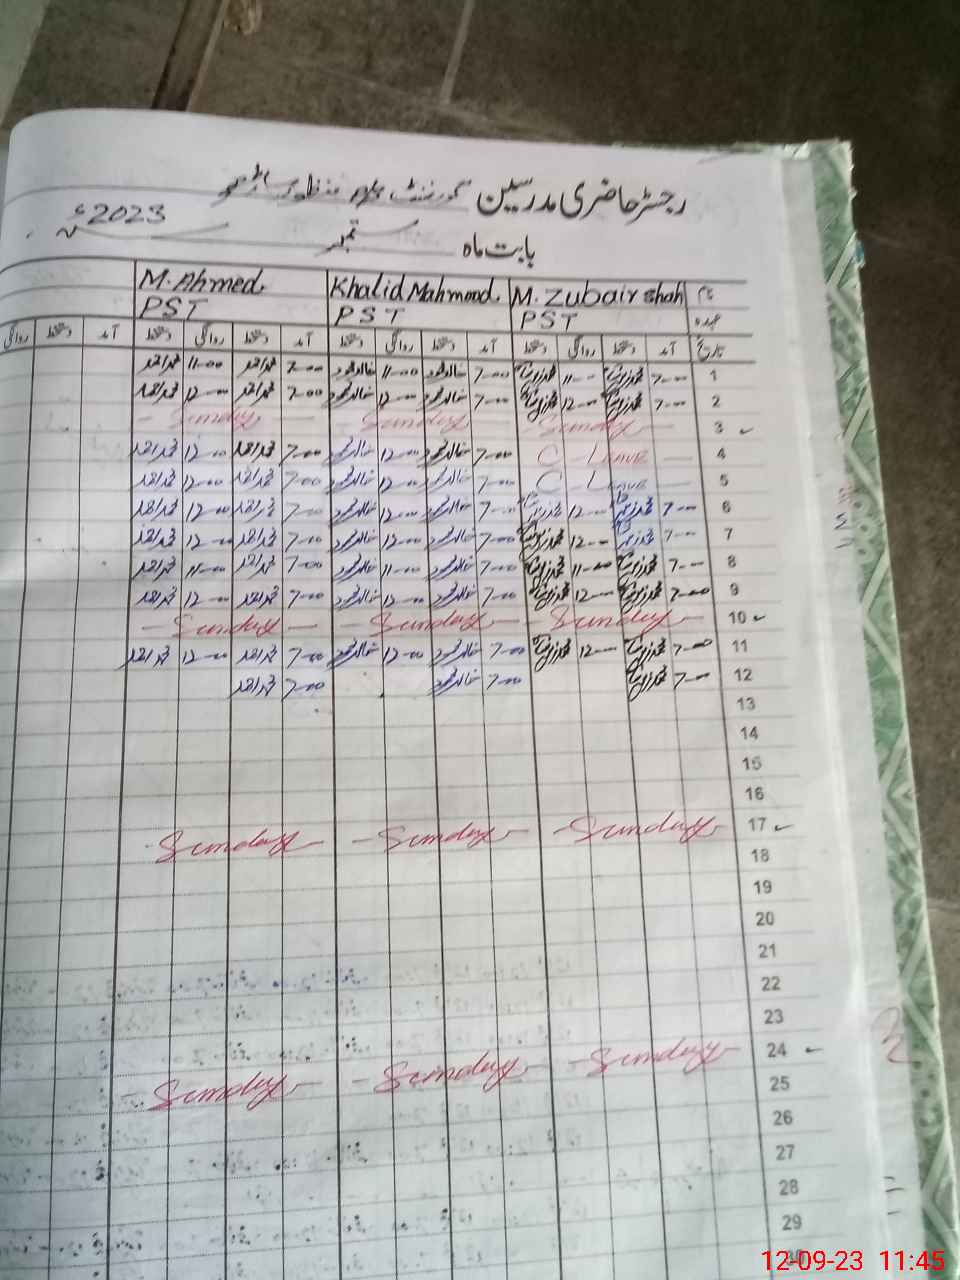 رجسٹر حاضری مدرسین گورنمنٹ
بابت ماہ ستمبر 2023ء
نام M. Zubair Shah Khalid Mahmood M. Ahmed
عہدہ PST PST PST
تاریخ آمد دستخط روانگی دستخط آمد دستخط روانگی دستخط آمد دستخط روانگی دستخط آمد دستخط روانگی
1 7-00 محمد زبیر شاہ 11-00 محمد زبیر شاہ 7-00 خالد محمود 11-00 خالد محمود 7-00 محمد احمد 11-00 محمد احمد
2 7-00 محمد زبیر شاہ 12-00 محمد زبیر شاہ 7-00 خالد محمود 12-00 خالد محمود 7-00 محمد احمد 12-00 محمد احمد
3 - Sunday - - Sunday - - Sunday -
4 C - Leave - 7-00 خالد محمود 12-00 خالد محمود 7-00 محمد احمد 12-00 محمد احمد
5 C - Leave - 7-00 خالد محمود 12-00 خالد محمود 7-00 محمد احمد 12-00 محمد احمد
6 7-00 محمد زبیر شاہ 12-00 محمد زبیر شاہ 7-00 خالد محمود 12-00 خالد محمود 7-00 محمد احمد 12-00 محمد احمد
7 7-00 محمد زبیر شاہ 12-00 محمد زبیر شاہ 7-00 خالد محمود 12-00 خالد محمود 7-00 محمد احمد 12-00 محمد احمد
8 7-00 محمد زبیر شاہ 11-00 محمد زبیر شاہ 7-00 خالد محمود 11-00 خالد محمود 7-00 محمد احمد 11-00 محمد احمد
9 7-00 محمد زبیر شاہ 12-00 محمد زبیر شاہ 7-00 خالد محمود 12-00 خالد محمود 7-00 محمد احمد 12-00 محمد احمد
10 - Sunday - - Sunday - - Sunday -
11 7-00 محمد زبیر شاہ 12-00 محمد زبیر شاہ 7-00 خالد محمود 12-00 خالد محمود 7-00 محمد احمد 12-00 محمد احمد
12 7-00 محمد زبیر شاہ 7-00 خالد محمود 7-00 محمد احمد
13
14
15
16
17 - Sunday - - Sunday - - Sunday -
18
19
20
21
22
23
24 - Sunday - - Sunday - - Sunday -
25
26
27
28
29
30
12-09-23 11:45